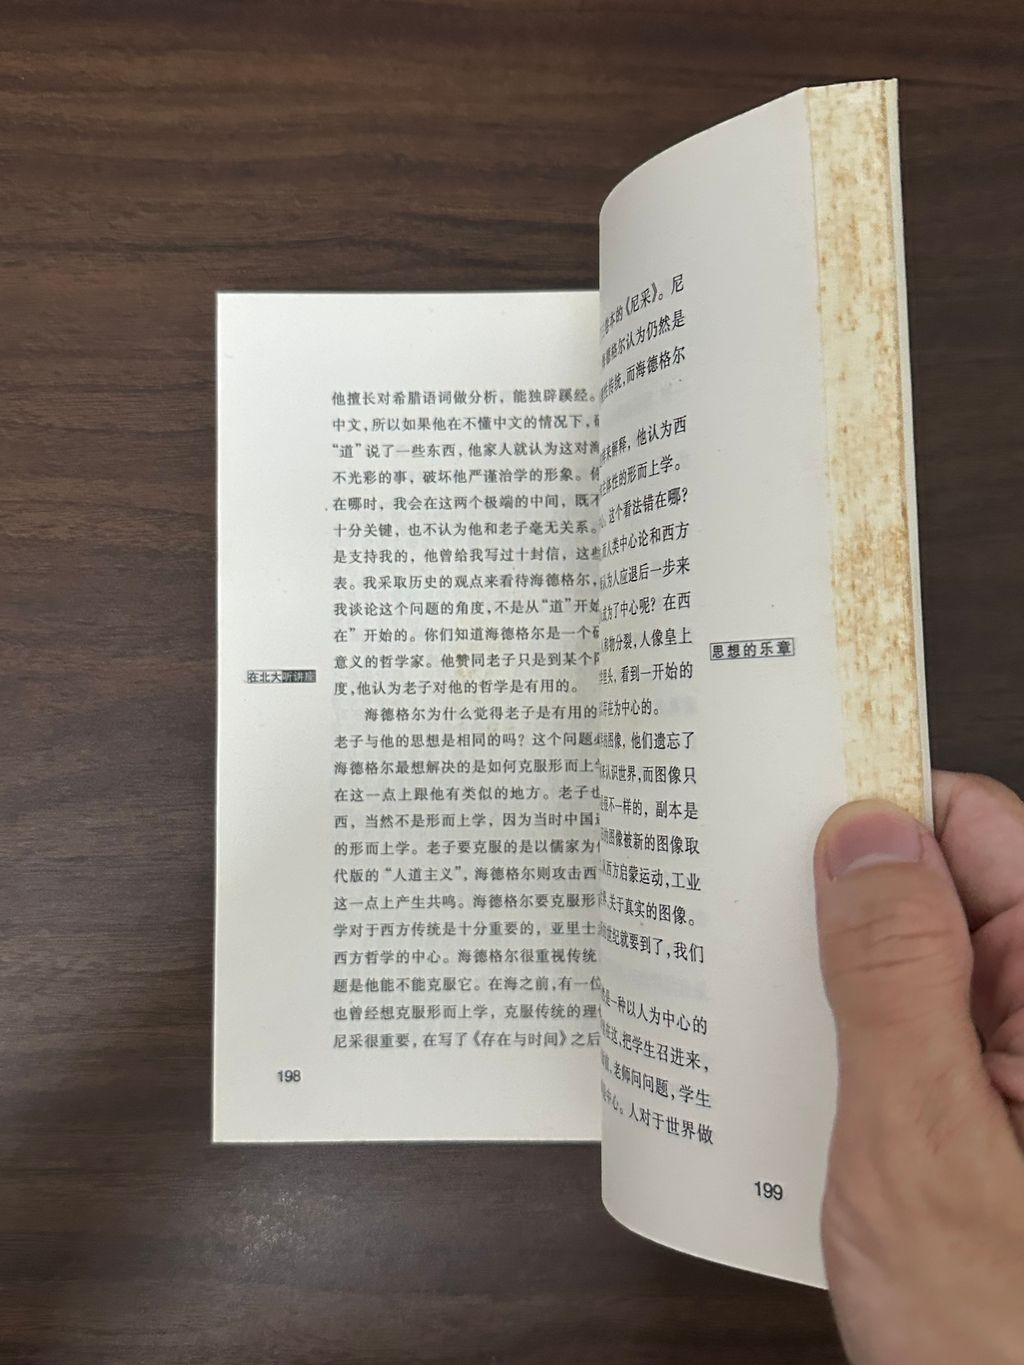 他擅长对希腊语词做分析，能独辟蹊经。
中文，所以如果他在不懂中文的情况下，
“道”说了一些东西，他家人就认为这对海
不光彩的事，破坏他严谨治学的形象。你
在哪时，我会在这两个极端的中间，既不
十分关键，也不认为他和老子毫无关系。
是支持我的，他曾给我写过十封信，这些
表。我采取历史的观点来看待海德格尔，
我谈论这个问题的角度，不是从“道”开始
在”开始的。你们知道海德格尔是一个
意义的哲学家。他赞同老子只是到某个
度，他认为老子对他的哲学是有用的。
海德格尔为什么觉得老子是有用的
老子与他的思想是相同的吗？这个问题
海德格尔最想解决的是如何克服形而上
在这一点上跟他有类似的地方。老子也
西，当然不是形而上学，因为当时中国
的形而上学。老子要克服的是以儒家为
代版的“人道主义”，海德格尔则攻击西
这一点上产生共鸣。海德格尔要克服形
学对于西方传统是十分重要的，亚里士
西方哲学的中心。海德格尔很重视传统
题是他能不能克服它。在海之前，有一位
也曾经想克服形而上学，克服传统的理
尼采很重要，在写了《存在与时间》之后
在北大听讲座
198
卷本的《尼采》。尼
德格尔认为仍然是
性传统，而海德格尔
来解释，他认为西
主体性的形而上学。
这个看法错在哪？
而人类中心论和西方
认为人应退后一步来
成为了中心呢？在西
人和物分裂，人像皇上
里头，看到一开始的
存在为中心的。
的图像，他们遗忘了
来认识世界，而图像只
是很不一样的，副本是
的图像被新的图像取
从西方启蒙运动，工业
关于真实的图像。
世纪就要到了，我们
是一种以人为中心的
在这，把学生召进来，
老师问问题，学生
中心。人对于世界做
思想的乐章
199